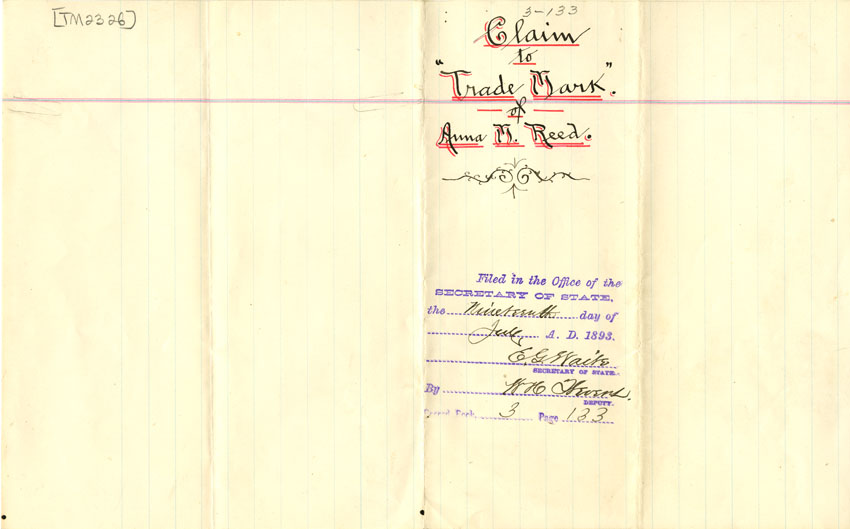 [TM2326]
3-133
Claim
to
"Trade Mark".
of
Anna M. Reed.
Filed in the Office of the
SECRETARY OF STATE,
the Nineteenth day of
July A. D. 1893.
E. G. Waite
SECRETARY OF STATE.
By W H
DEPUTY.
Record Book 3 Page 133